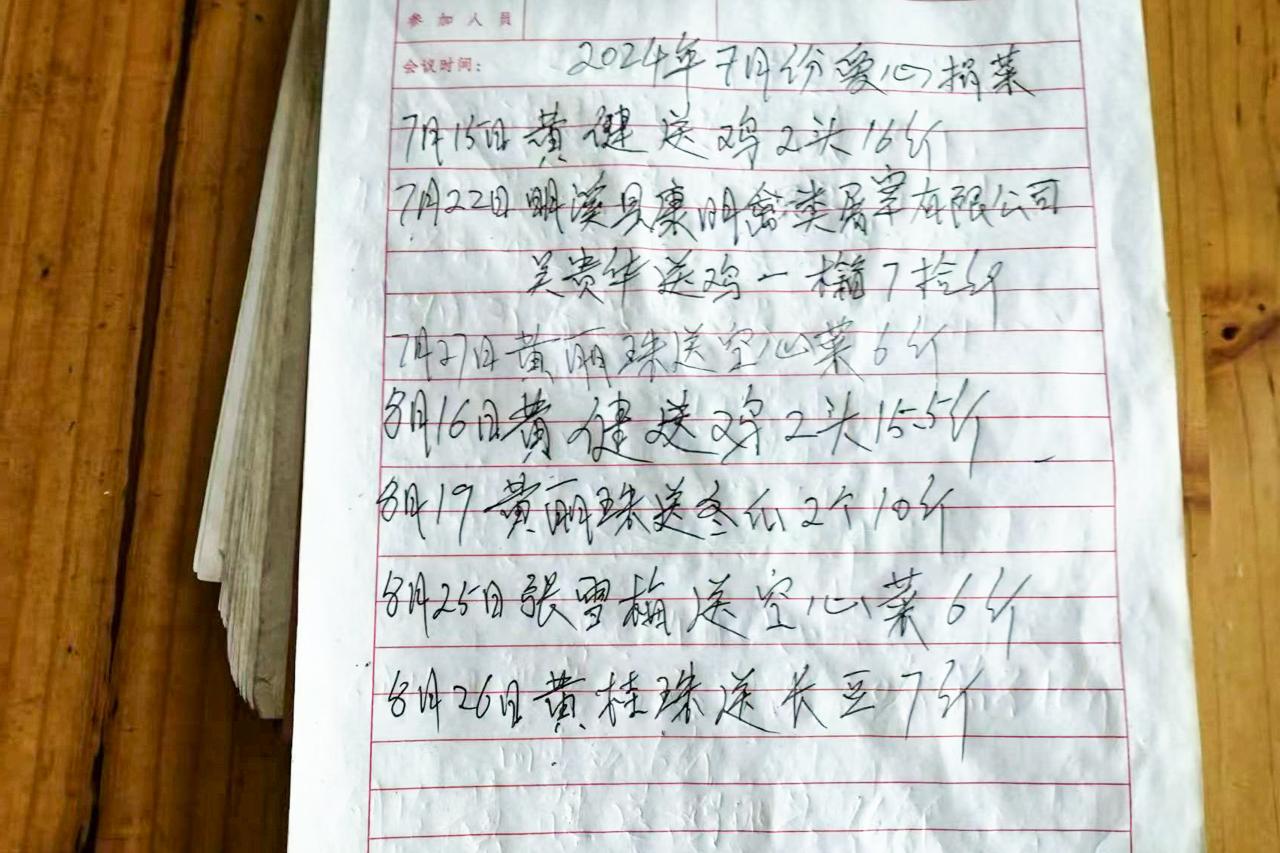 参加人员
会议时间: 2024年7月份爱心捐菜
7月15日黄健送鸡2头16斤
7月22日明溪县惠明禽类屠宰有限公司
吴贵华送鸡一箱7拾斤
7月27日黄丽珠送空心菜6斤
8月16日黄健送鸡2头15.5斤
8月19黄丽珠送冬瓜2个10斤
8月25日張雪梅送空心菜6斤
8月26日黄桂珠送长豆7斤